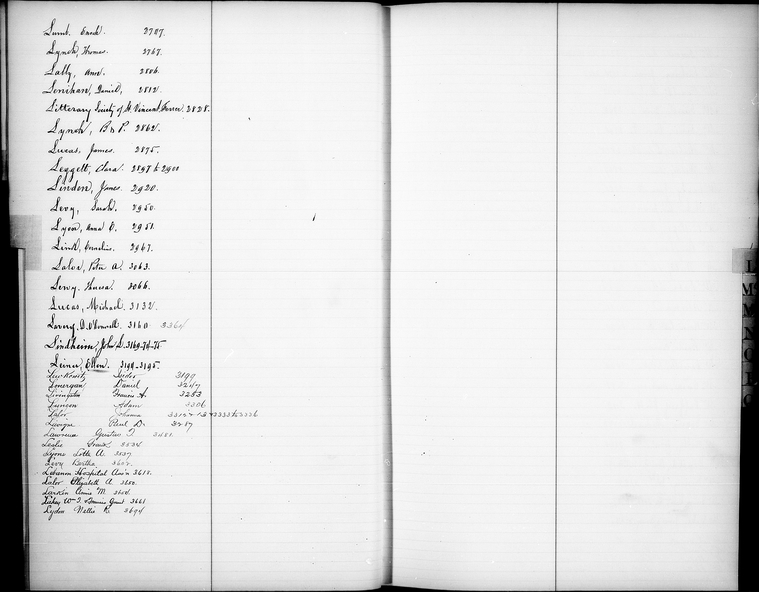 Lynch, Thomas. 2767.
Lally, Anne. 2806.
Lenihan, Daniel, 2812.
Litterary Society of St. Vincent Ferrer. 2828.
Lynch, B & P. 2862.
Lucas, James. 2875.
Leggett, Clara. 2897 to 2900
Linden, James. 2920.
Levy, Sarah. 2950.
Lyon, Anna E. 2951.
Link, Cornelius. 2967.
Lalor, Peter A. 3063.
Levy, Theresa. 3066.
Lucas, Michael. 3132.
Lavery, D. O'Connell. 3160 3364
Lindheim, John L. 3169-74-75
Leiner, Ellen. 3194-3195.
Lewkowitz Isidor 3199
Lonergan Daniel 3247
Livingston Francis A. 3283
Adam 3306
Lalor
Lavigne Paul D. 3287
Lawrence Gustav T. 3481
Leslie 3534
Lyons Lotte A. 3537
Levy Bertha 3602.
Lebanon Hospital Ass'n 3618.
Lalor Elizabeth A. 3650.
Larkin Annie M. 3654.
3661
Lydon Nellie R. 3694
L
M
N
O